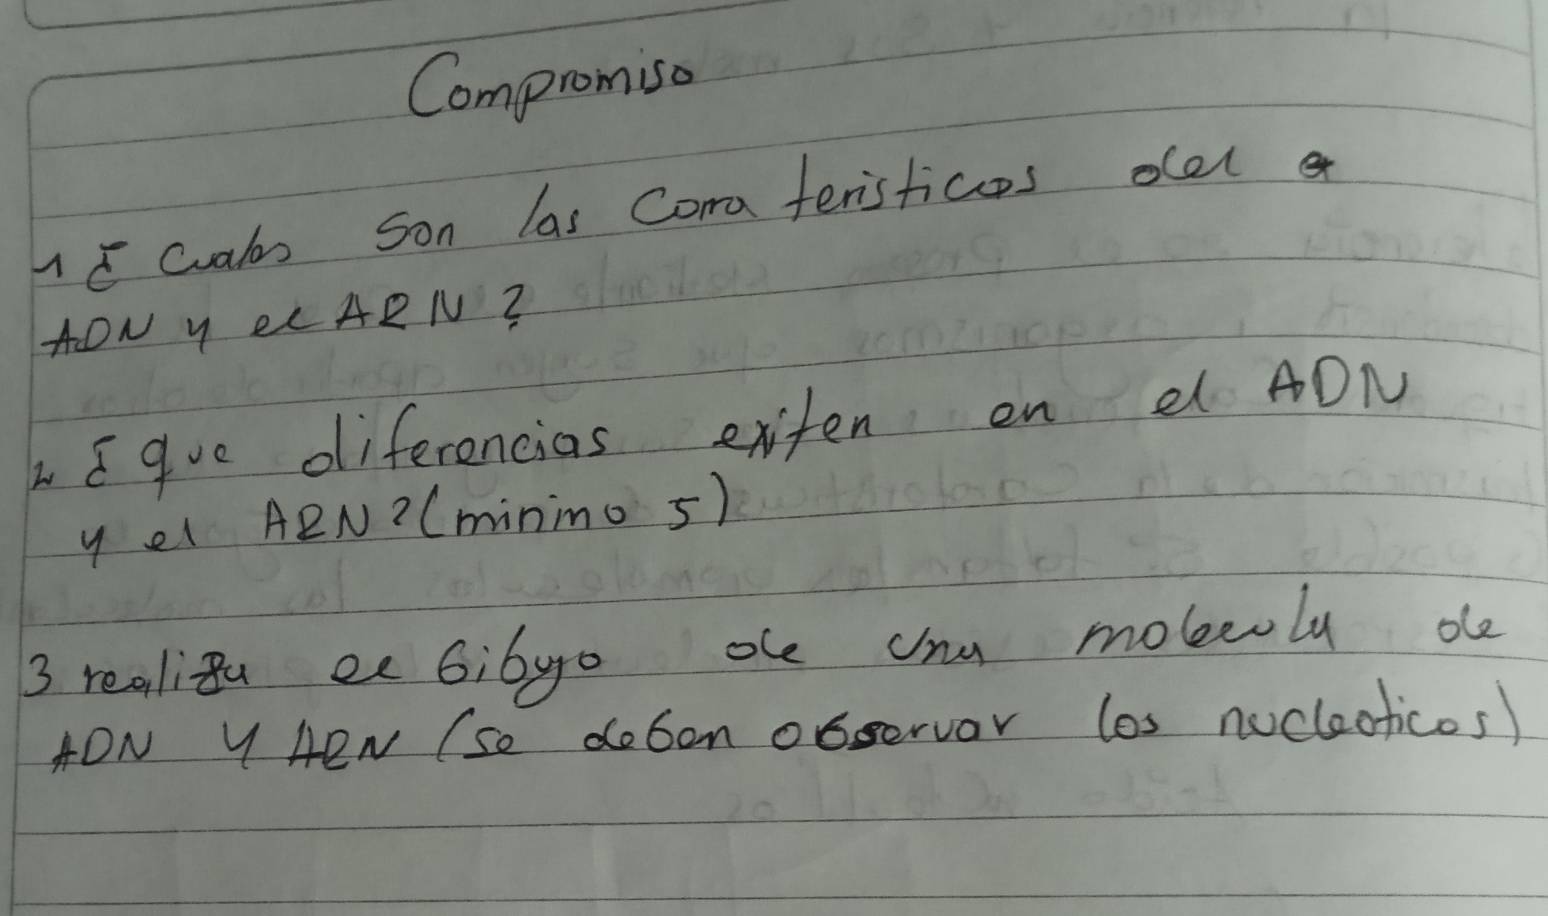 Compromiso
1 ¿ Cuales son las Cara teristicas del a
ADN y el ARN?
2 ¿ que diferencias exiten en el ADN
y el ARN? (minimo 5)
3 realiza el Dibujo de una molecula de
ADN y ARN (se deben observar los nucleoticos)